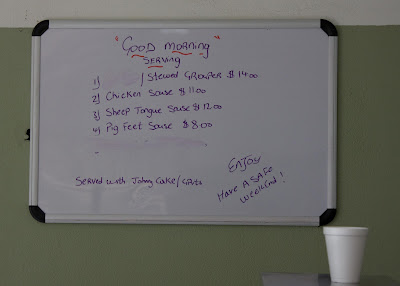 "GOOD MORNING"
SERVING
1) / STEWED GROUPER $14.00
2) Chicken Souse $11.00
3) Sheep Tongue Souse $12.00
4) Pig Feet Souse $8.00
-
Served with Johny Cake/Grits
ENJOY
HAVE A SAFE
WEEKEND!